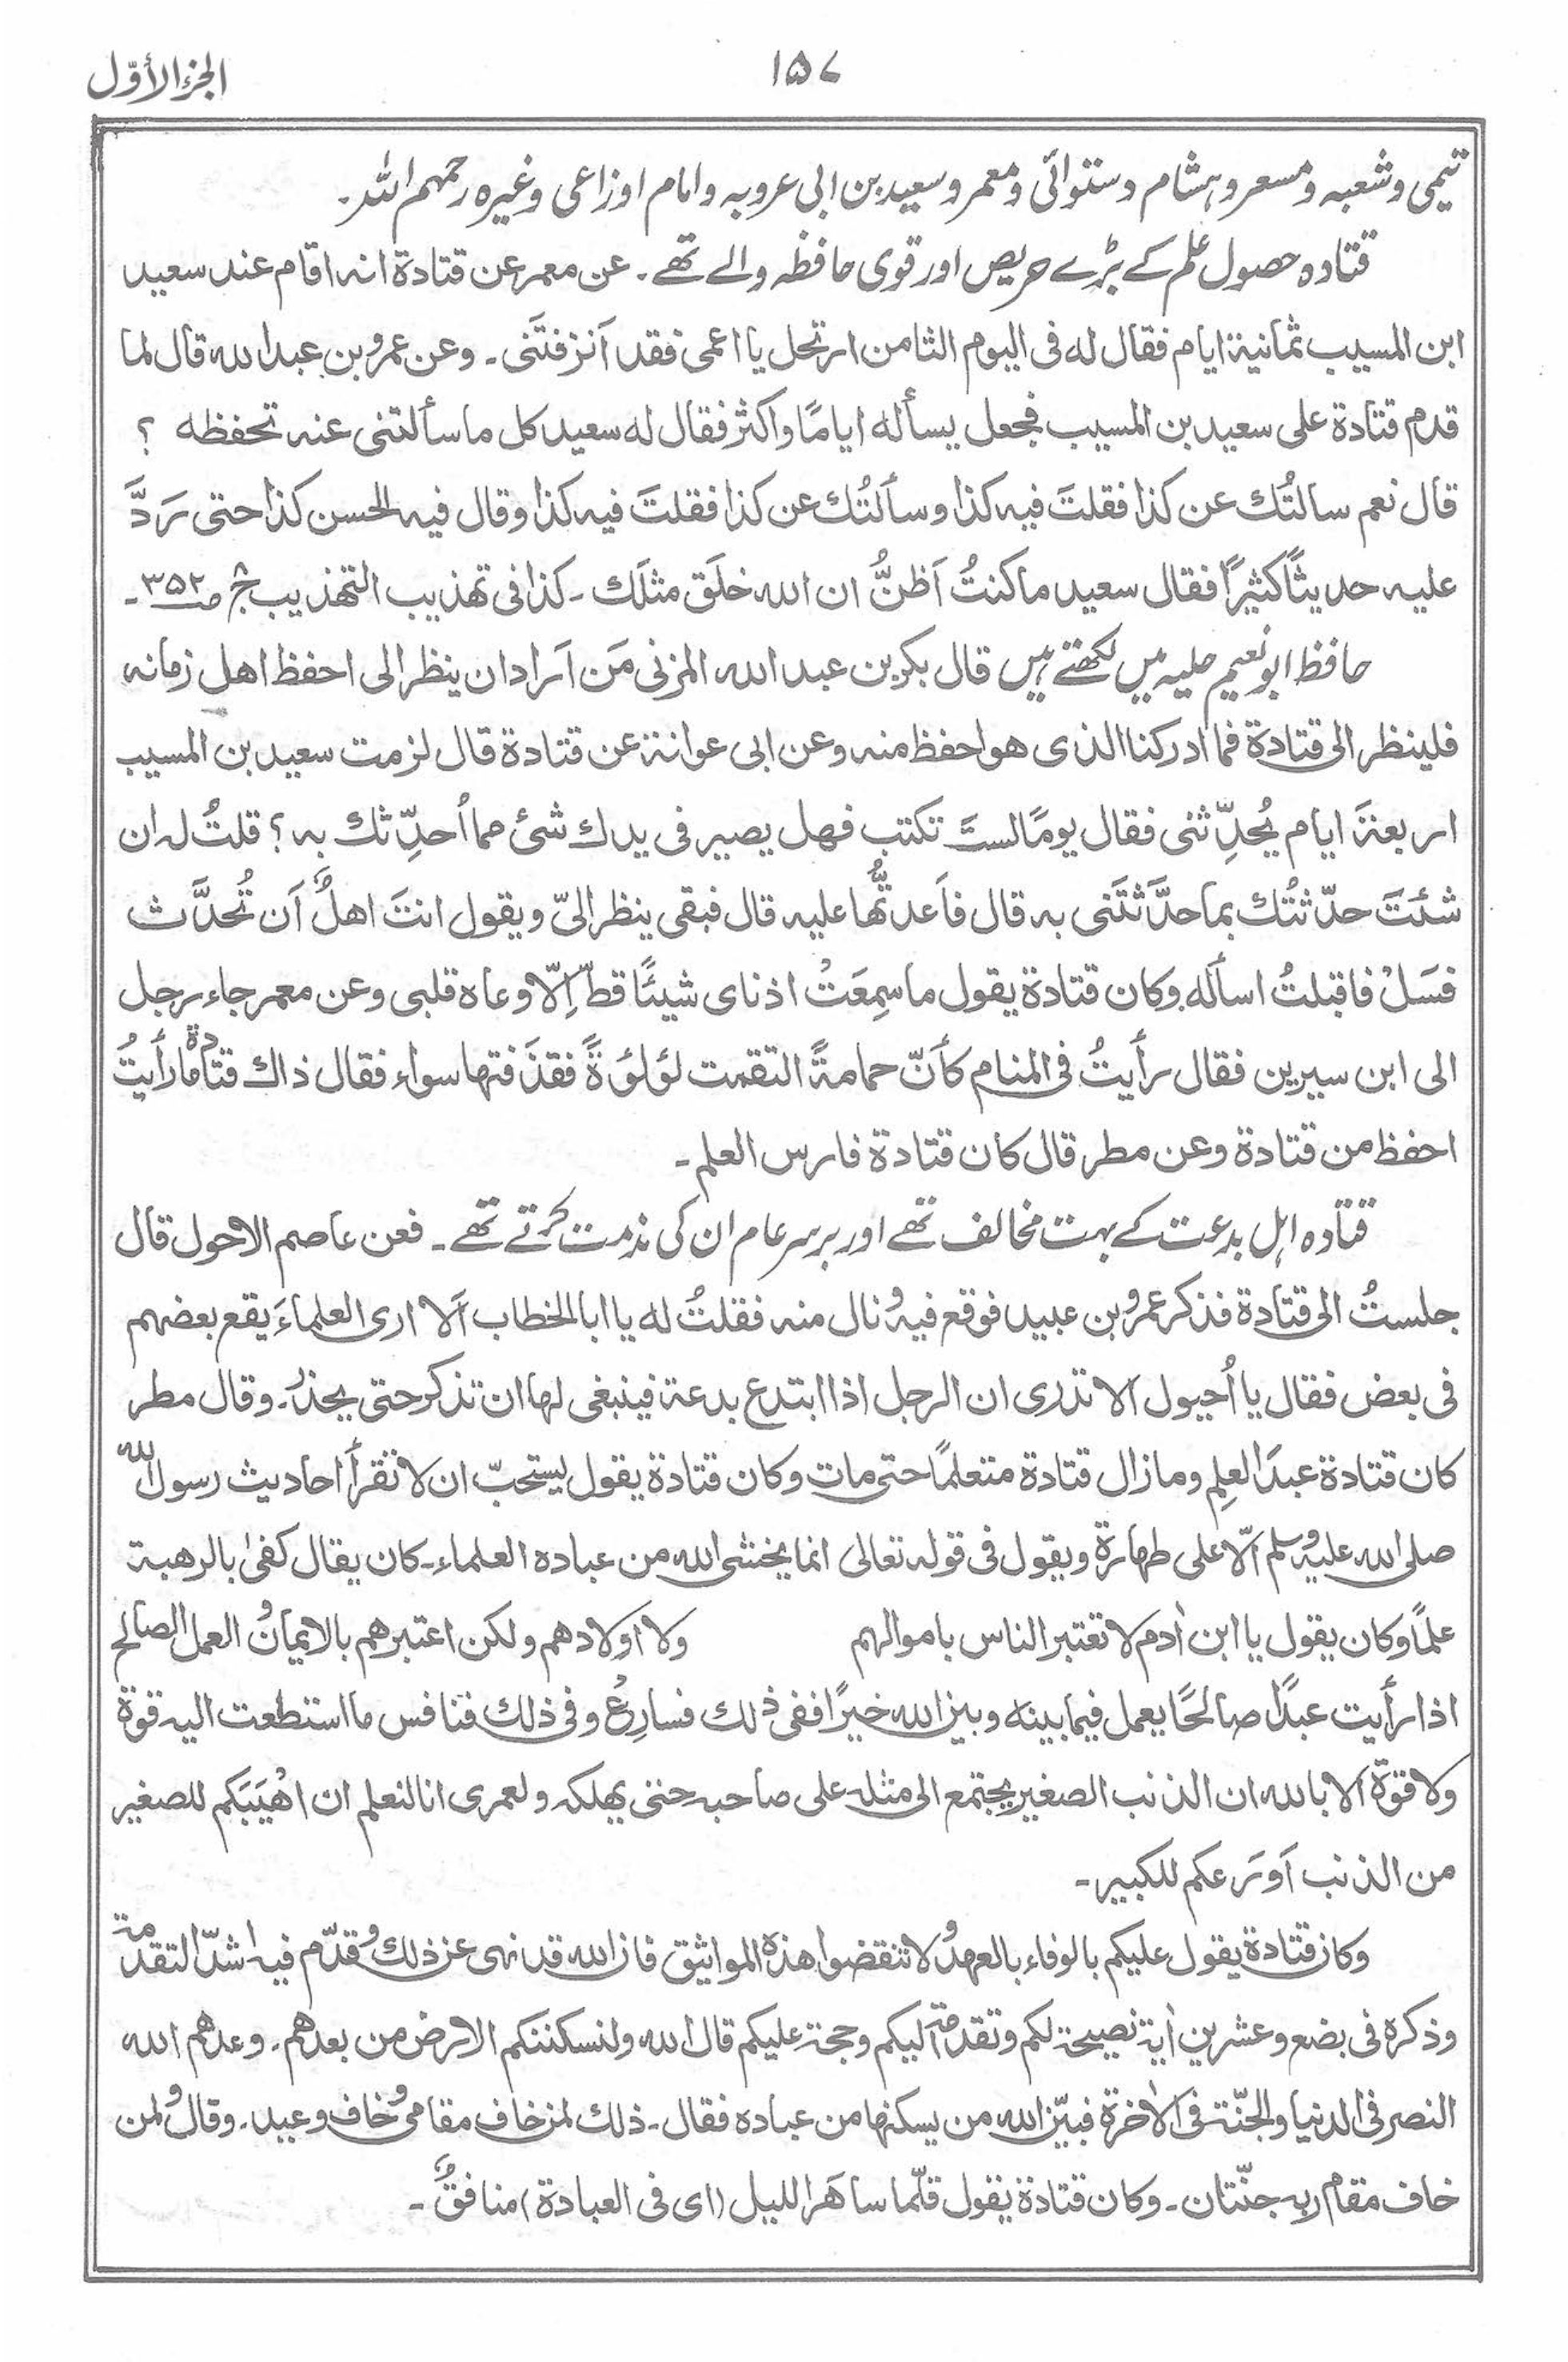 الجزء الأوّل
۱۵۷
تیمی و شعبہ و مسعر و ہشام دستوائی و معمر و سعید بن ابی عروبہ و امام اوزاعی وغیرہ رحمہم اللہ۔
قتادہ حصول علم کے بڑے حریص اور قوی حافظہ والے تھے۔ عن معمر عن قتادة انه اقام عند سعيد
ابن المسيب ثمانية ايام فقال له فى اليوم الثامن ارتحل يا اعمى فقد اَنزفتَنى۔ وعن عمرو بن عبد الله قال لما
قدم قتادة على سعيد بن المسيب فجعل يسأله ايامًا واكثر فقال له سعيد كل ما سألتنى عنه تحفظه ؟
قال نعم سالتُك عن كذا فقلتَ فيه كذا وسألتُك عن كذا فقلتَ فيه كذا وقال فيه الحسن كذا حتى رَدَّ
عليه حديثًا كثيرًا فقال سعيد ما كنتُ اَظنُّ ان الله خلَق مثلَك۔ كذا فى تهذيب التهذيب ج۸ ص۳۵۲۔
حافظ ابو نعیم حلیہ میں لکھتے ہیں قال بكر بن عبد الله المزنى مَن اَراد ان ينظر الى احفظ اهل زمانه
فلينظر الى قتادة فما ادركنا الذى هو احفظ منه وعن ابى عوانة عن قتادة قال لزمت سعيد بن المسيب
اربعةَ ايام يُحدِّثنى فقال يومًا لستَ تكتب فهل يصير فى يدك شئ مما اُحدِّثك به ؟ قلتُ له ان
شئتَ حدّثتُك بما حدَّثتَنى به قال فاَعدتُّها عليه قال فبقى ينظر الىّ ويقول انتَ اهلٌ اَن تُحدَّث
فسَلْ فاقبلتُ اسأله وكان قتادة يقول ما سمِعَتْ اذناى شيئًا قطّ اِلّا وعاه قلبى وعن معمر جاء رجل
الى ابن سيرين فقال رأيتُ فى المنام كأنّ حمامةً التقمت لؤلؤةً فقذَفتها سواء فقال ذاك قتادة ما رأيتُ
احفظ من قتادة وعن مطر قال كان قتادة فارس العلم۔
قتادہ اہل بدعت کے بہت مخالف تھے اور برسر عام ان کی مذمت کرتے تھے۔ فعن عاصم الاحول قال
جلستُ الى قتادة فذكر عمرو بن عبيد فوقع فيه ونال منه فقلتُ له يا ابا الخطاب اَلا ارى العلماءَ يقع بعضهم
فى بعض فقال يا اُحيول الا تدرى ان الرجل اذا ابتدع بدعة فينبغى لها ان تذكر حتى يحذر۔ وقال مطر
كان قتادة عبدَ العلمِ وما زال قتادة متعلمًا حتى مات وكان قتادة يقول يستحبّ ان لا تقرأ احاديث رسول الله
صلى الله عليه وسلم الّا على طهارة ويقول فى قوله تعالى انما يخشى الله من عباده العلماء۔ كان يقال كفىٰ بالرهبة
علمًا وكان يقول يا ابن اٰدم لا تعتبر الناس باموالهم ولا اولادهم ولكن اعتبرهم بالايمان والعمل الصالح
اذا رأيت عبدًا صالحًا يعمل فيما بينه وبين الله خيرًا ففى ذلك فسارِعْ وفى ذلك فنافس ما استطعت اليه قوة
ولا قوّة اَلا بالله ان الذنب الصغير يجتمع الى مثله على صاحبه حتى يهلكه ولعمرى انا لنعلم ان اهْيَبَكم للصغير
من الذنب اَورَعكم للكبير۔
وكان قتادة يقول عليكم بالوفاء بالعهد ولا تنقضوا هذه المواثيق فان الله قد نهى عن ذلك وقدّم فيه اشدّ التقدمة
وذكره فى بضع وعشرين اٰية نصيحة لكم وتقدمة اليكم وحجة عليكم قال الله ولنسكننكم الارض من بعدهم۔ وعدهم الله
النصر فى الدنيا والجنّة فى الاٰخرة فبيّن الله من يسكنها من عباده فقال۔ ذلك لمن خاف مقامى وخاف وعيد۔ وقال ولمن
خاف مقام ربه جنّتان۔ وكان قتادة يقول قلّما ساهَر الليل (اى فى العبادة) منافقٌ۔